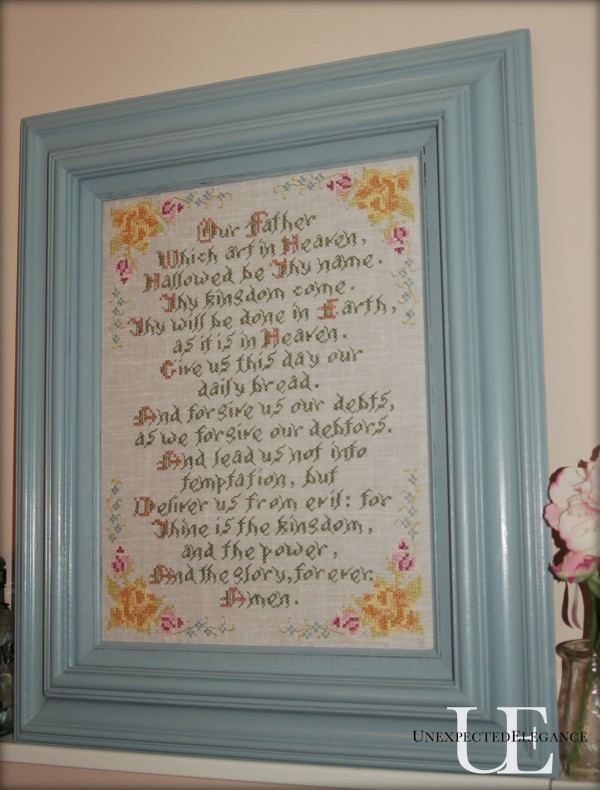 Our Father
Which art in Heaven,
Hallowed be Thy name.
Thy kingdom come.
Thy will be done in Earth,
as it is in Heaven.
Give us this day our
daily bread.
And forgive us our debts,
as we forgive our debtors.
And lead us not into
temptation, but
Deliver us from evil: for
Thine is the kingdom,
and the power,
And the glory, forever.
Amen.
UE
UNEXPECTEDELEGANCE